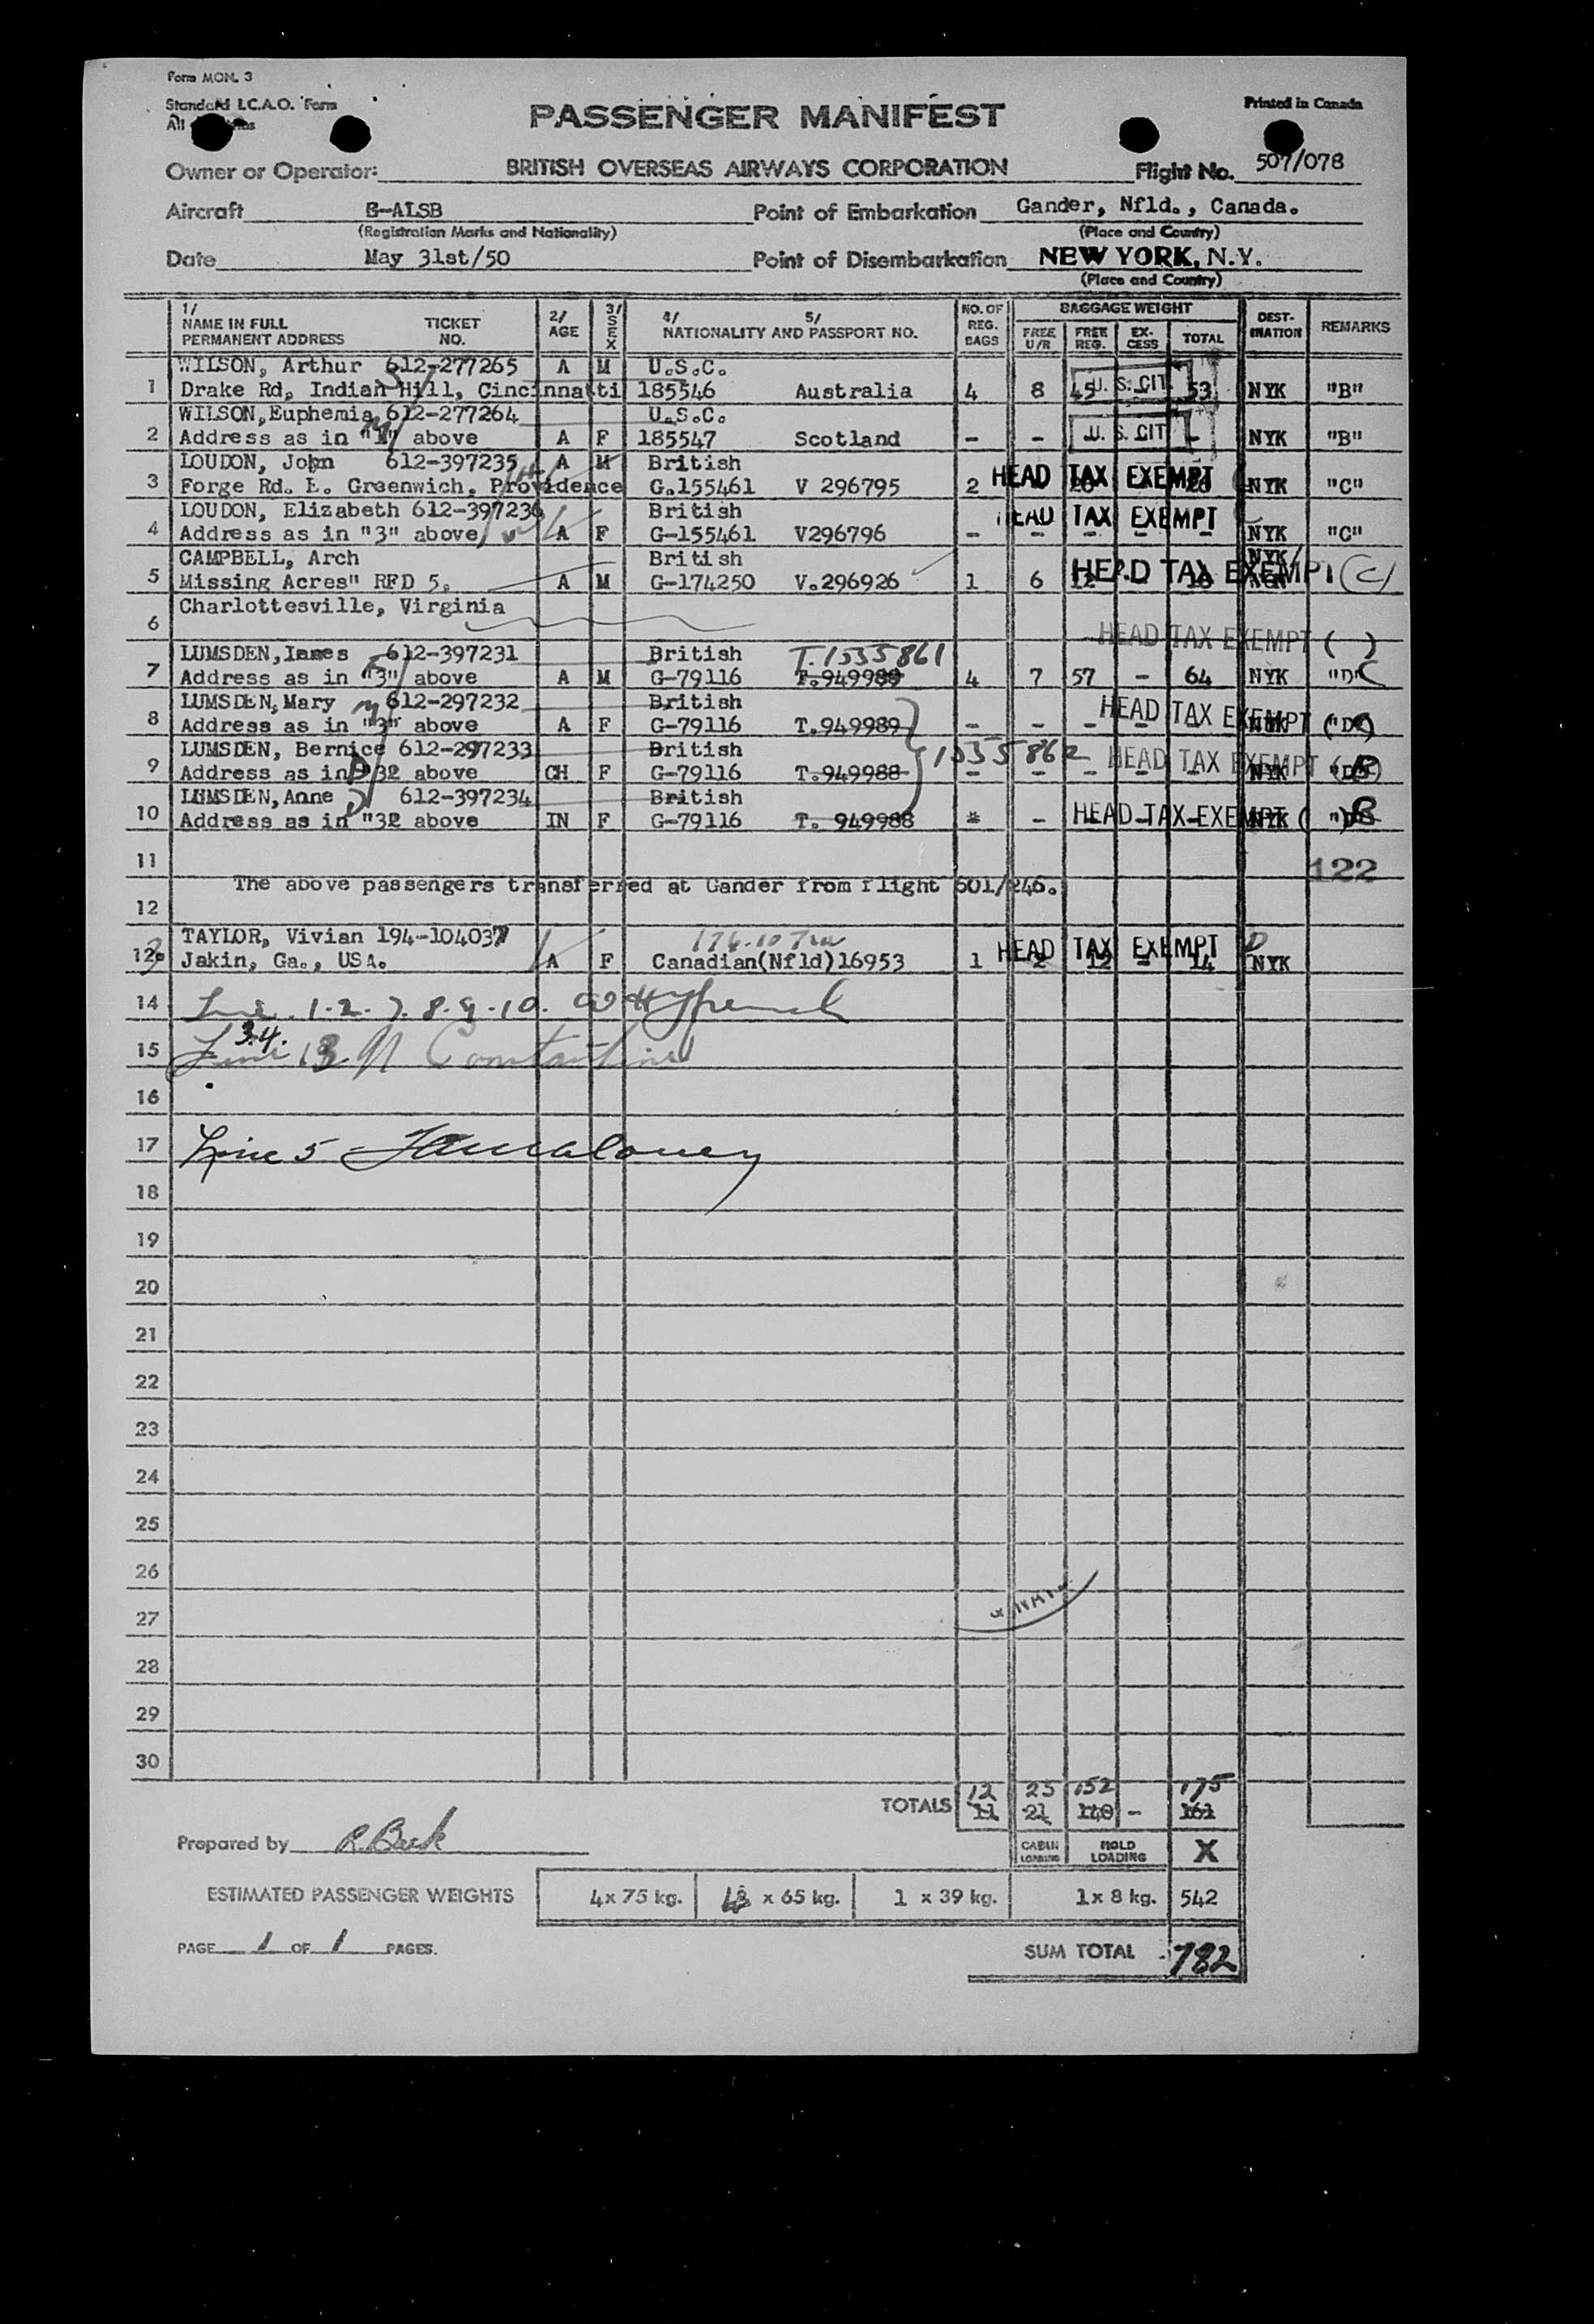 Form MON. 3
Standard I.C.A.O. Form
All
Printed in Canada
PASSENGER MANIFEST
Owner or Operator: BRITISH OVERSEAS AIRWAYS CORPORATION Flight No. 507/078
Aircraft G-ALSB Point of Embarkation Gander, Nfld., Canada.
(Registration Marks and Nationality) (Place and Country)
Date May 31st/50 Point of Disembarkation NEW YORK, N.Y.
(Place and Country)
1/ NAME IN FULL PERMANENT ADDRESS TICKET NO. 2/ AGE 3/ SEX 4/ NATIONALITY AND 5/ PASSPORT NO. NO. OF REG. BAGS BAGGAGE WEIGHT FREE U/R FREE REG. EX-CESS TOTAL DEST-INATION REMARKS
WILSON, Arthur 612-277265 A M U.S.C.
1 Drake Rd, Indian Hill, Cincinnatti 185546 Australia 4 8 45 U. S. CIT. - 53 NYK "B"
WILSON, Euphemia 612-277264 U.S.C.
2 Address as in "1" above A F 185547 Scotland - - U. S. CIT. - NYK "B"
LOUDON, John 612-397235 A M British
3 Forge Rd. E. Greenwich, Providence G.155461 V 296795 2 HEAD TAX EXEMPT NYK "C"
LOUDON, Elizabeth 612-397236 British HEAD TAX EXEMPT
4 Address as in "3" above A F G-155461 V296796 - - - - - NYK "C"
CAMPBELL, Arch British NYK/
5 Missing Acres" RFD 5. A M G-174250 V.296926 1 6 12 HEAD TAX EXEMPT (C)
Charlottesville, Virginia
6 HEAD TAX EXEMPT ( )
LUMSDEN, James 612-397231 British T.1535861
7 Address as in "3" above A M G-79116 T.949989 4 7 57 - 64 NYK "D" C
LUMSDEN, Mary 612-297232 British HEAD TAX EXEMPT
8 Address as in "3" above A F G-79116 T.949989 - - - - - NYK
LUMSDEN, Bernice 612-297233 British 1535862 HEAD TAX EXEMPT
9 Address as in "32 above CH F G-79116 T.949988 - - - - - NYK
LUMSDEN, Anne 612-397234 British
10 Address as in "32 above IN F G-79116 T. 949988 - HEAD TAX EXEMPT NYK
11 122
The above passengers transferred at Gander from flight 501/246.
12
TAYLOR, Vivian 194-104037
12. Jakin, Ga., USA. A F Canadian(Nfld)16953 1 2 12 - 14 HEAD TAX EXEMPT D NYK
14 Line 1.2.7.8.9.10.
15 Line 3.4. 13
16
17 Line 5
18
19
20
21
22
23
24
25
26
27
28
29
30
12 25 152 175
TOTALS 11 21 140 - 161
Prepared by R. Beck CABIN LOADING HOLD LOADING X
ESTIMATED PASSENGER WEIGHTS 4 x 75 kg. x 65 kg. 1 x 39 kg. 1 x 8 kg. 542
PAGE 1 OF 1 PAGES. SUM TOTAL 782